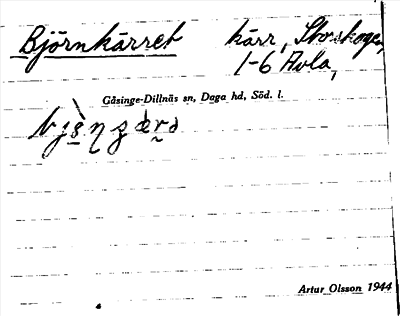 Björnkärret kärr, Storskogen,
1-6 Avla,
Gåsinge-Dillnäs sn, Daga hd, Söd. l.
Artur Olsson 1944